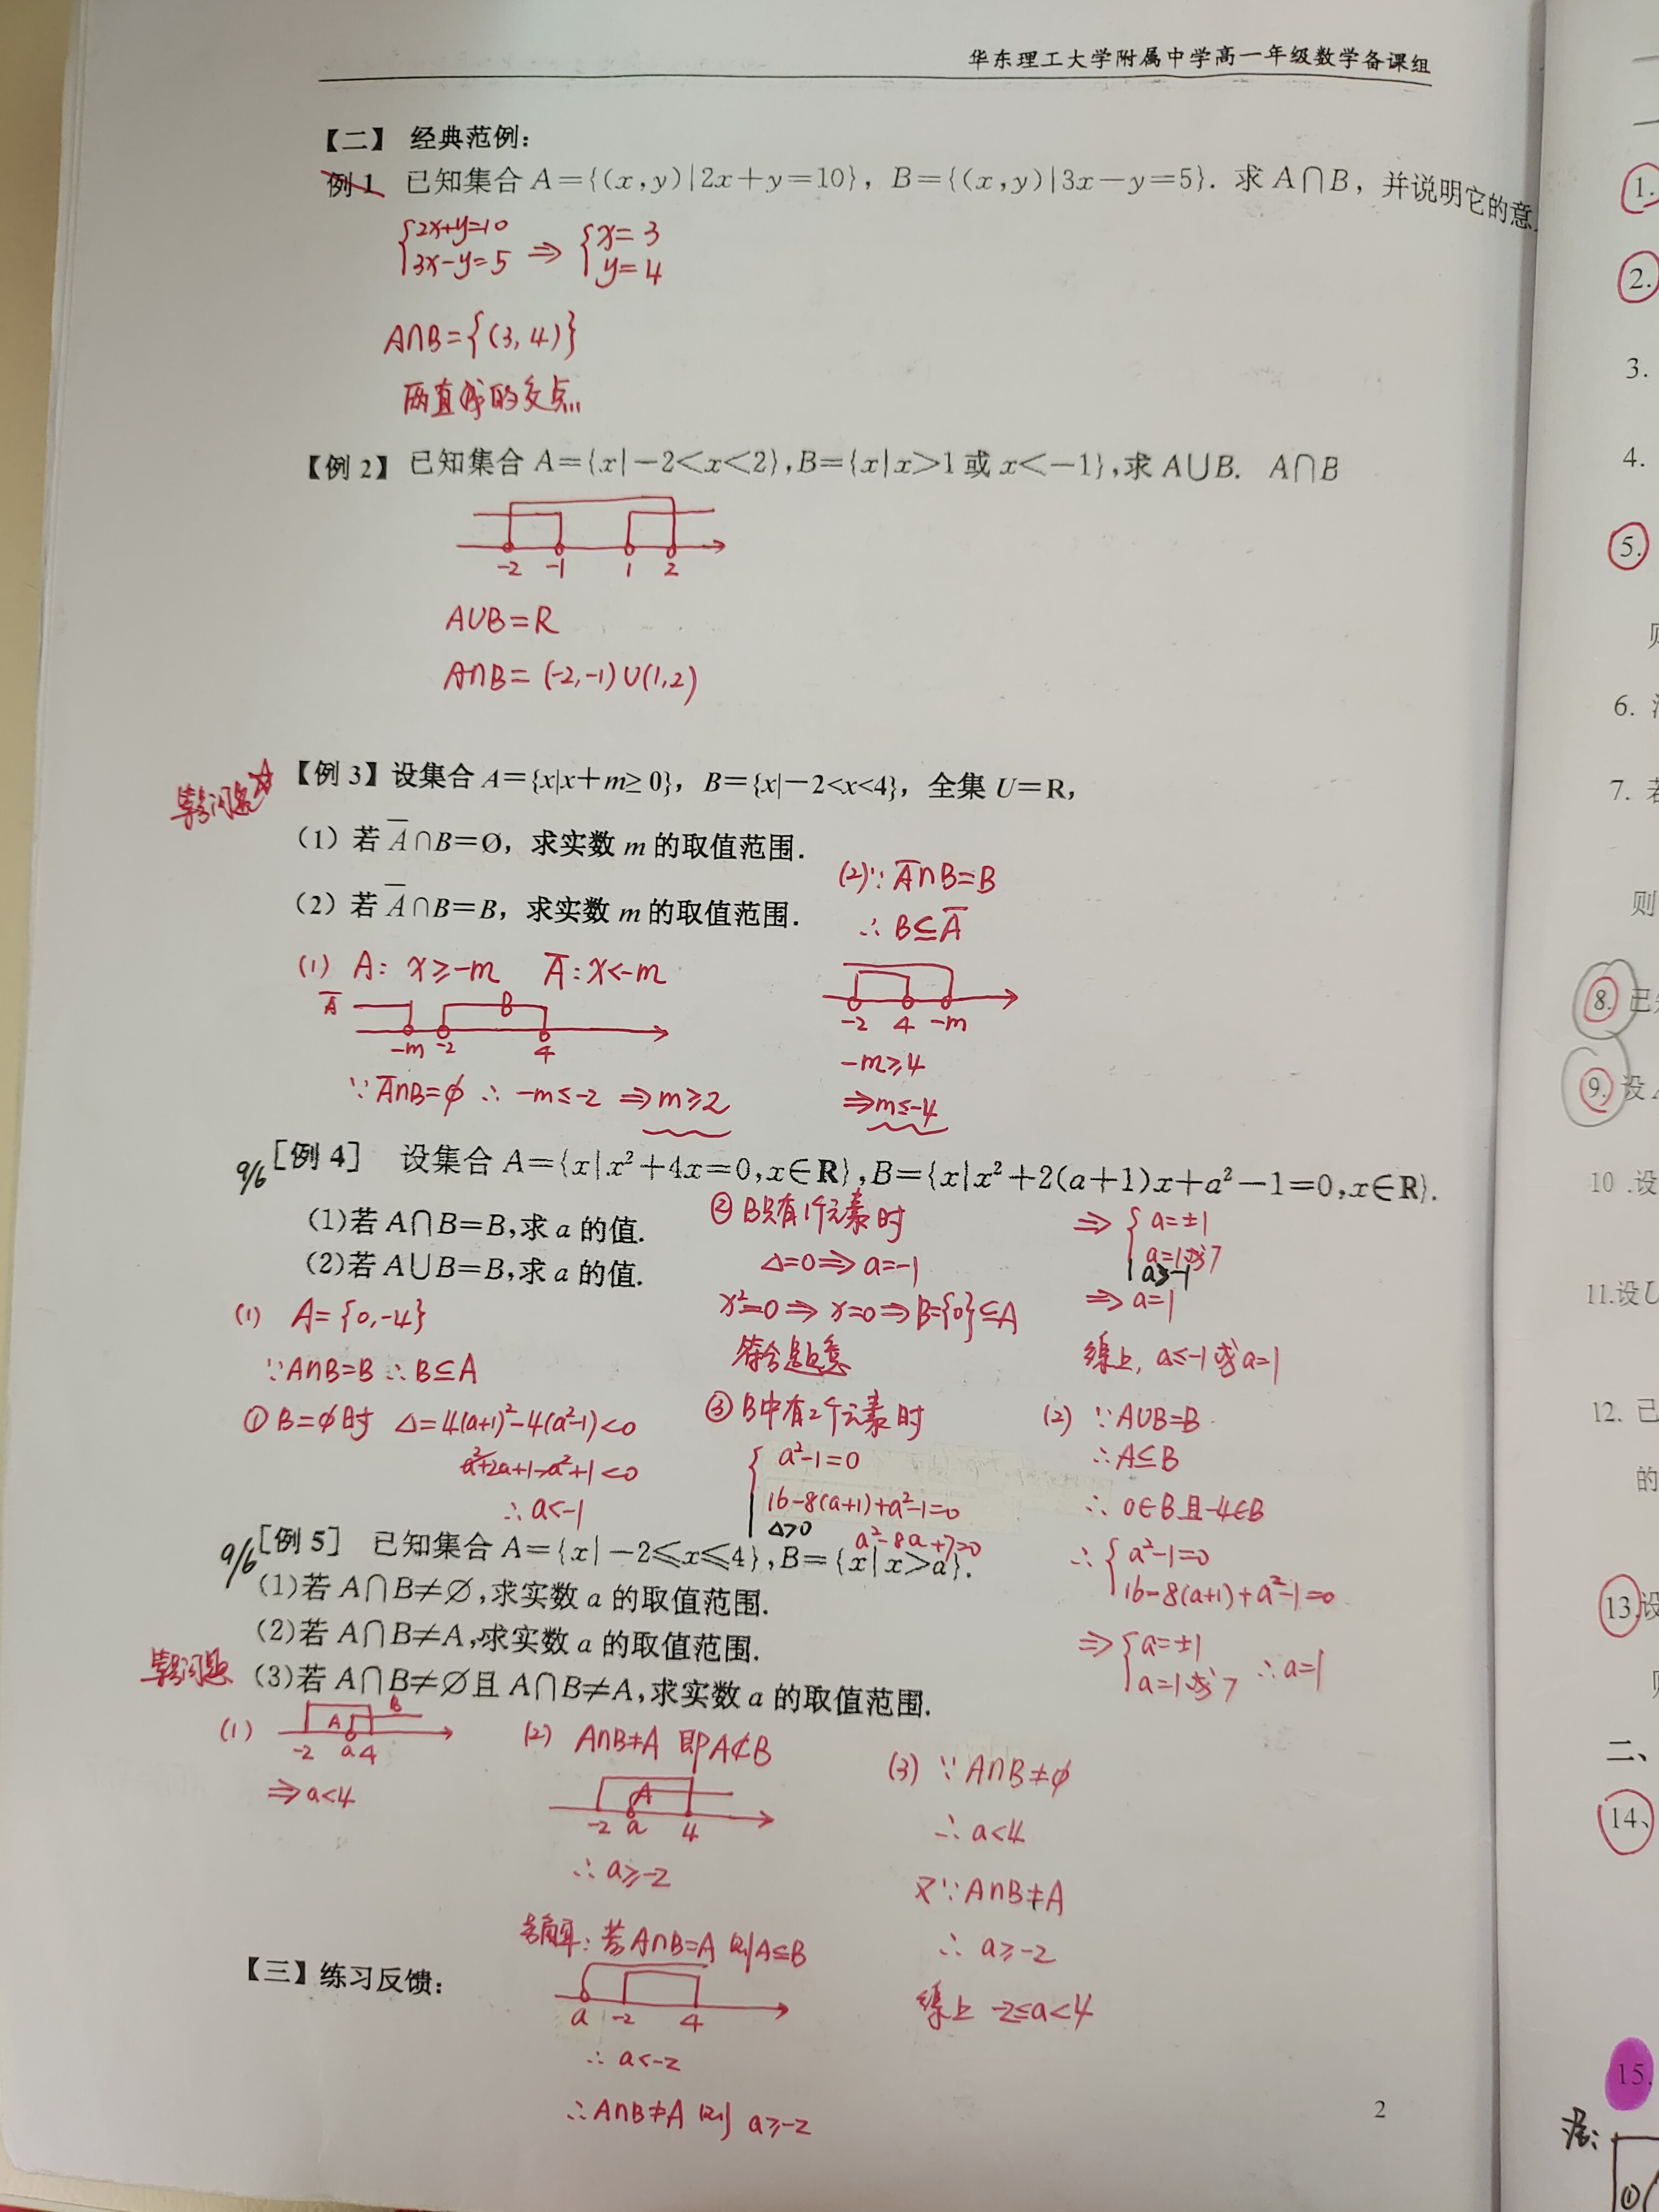 华东理工大学附属中学高一年级数学备课组
【二】 经典范例:
例1 已知集合 A={(x,y)|2x+y=10}, B={(x,y)|3x-y=5}. 求 A∩B, 并说明它的意
{2x+y=10 ⇒ {x=3
3x-y=5 y=4
A∩B={(3,4)}
两直线的交点
【例2】已知集合 A={x|-2<x<2},B={x|x>1或x<-1},求 A∪B. A∩B
-2 -1 1 2
A∪B=R
A∩B=(-2,-1)∪(1,2)
【例3】设集合 A={x|x+m≥0}, B={x|-2<x<4}, 全集 U=R,
(1) 若 A̅∩B=Ø, 求实数 m 的取值范围.
(2) 若 A̅∩B=B, 求实数 m 的取值范围.
(1) A: x≥-m A̅: x<-m
A̅ B
-m -2 4
∵A̅∩B=∅ ∴ -m≤-2 ⇒ m≥2
(2)∵ A̅∩B=B
∴ B⊆A̅
-2 4 -m
-m≥4
⇒m≤-4
9/6 [例4] 设集合 A={x|x²+4x=0,x∈R},B={x|x²+2(a+1)x+a²-1=0,x∈R}.
(1)若 A∩B=B,求 a 的值.
(2)若 A∪B=B,求 a 的值.
(1) A={0,-4}
∵A∩B=B ∴B⊆A
① B=∅时 Δ=4(a+1)²-4(a²-1)<0
a²+2a+1-a²+1<0
∴a<-1
② B只有1个元素时
Δ=0⇒a=-1
x²=0⇒x=0⇒B={0}⊆A
符合题意
③ B中有2个元素时
{a²-1=0
16-8(a+1)+a²-1=0
Δ>0 a²-8a+7=0
⇒ {a=±1
a=1或7
a>-1
⇒a=1
综上, a≤-1或a=1
(2) ∵A∪B=B
∴A⊆B
∴0∈B且-4∈B
∴ {a²-1=0
16-8(a+1)+a²-1=0
⇒ {a=±1
a=1或7 ∴a=1
9/6 [例5] 已知集合 A={x|-2≤x≤4},B={x|x>a}.
(1)若 A∩B≠∅,求实数 a 的取值范围.
(2)若 A∩B≠A,求实数 a 的取值范围.
(3)若 A∩B≠∅且 A∩B≠A,求实数 a 的取值范围.
(1) A B
-2 a 4
⇒a<4
(2) A∩B≠A 即A⊄B
A
-2 a 4
∴a≥-2
若A∩B=A 则A⊆B
a -2 4
∴a<-2
∴A∩B≠A 则 a≥-2
(3) ∵A∩B≠∅
∴a<4
又∵A∩B≠A
∴a≥-2
综上 -2≤a<4
【三】练习反馈:
2
1.
2.
3.
4.
5.
6.
7.
则
8.
9. 设
10.设
11.设U
12. 已
的
13.设
二、
14、
15.